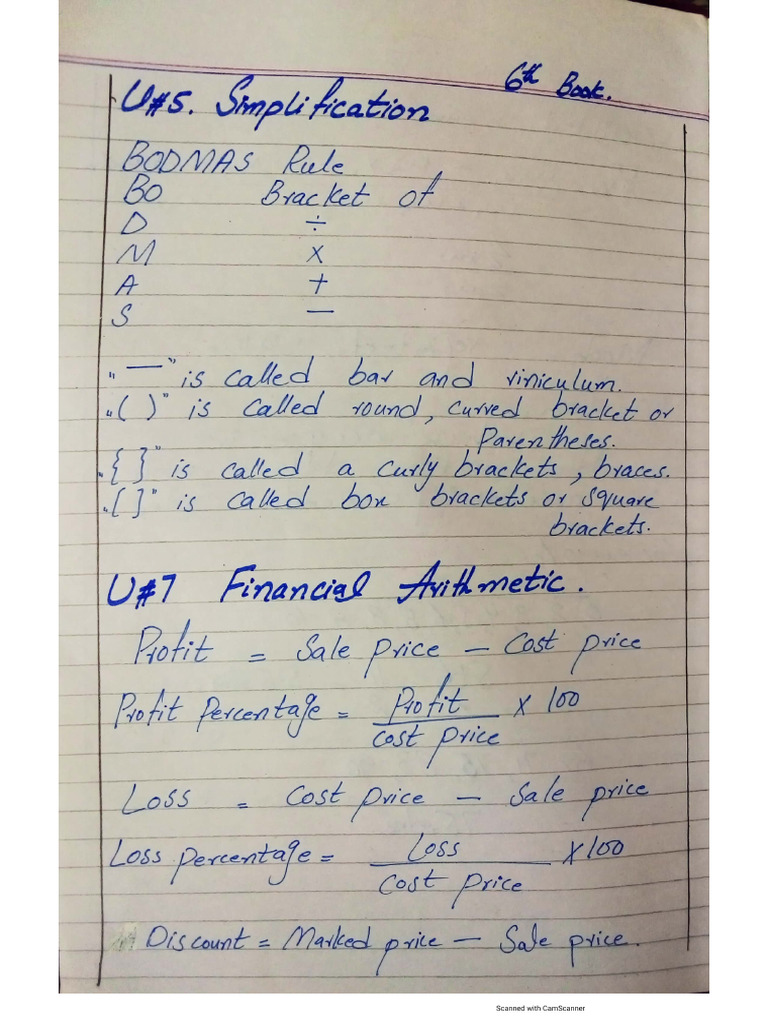 6th Book.
U#5. Simplification
BODMAS Rule
BO Bracket of
D ÷
M ×
A +
S —
"—" is called bar and viniculum.
"( )" is called round, curved bracket or
Parentheses.
"{ }" is called a curly brackets, braces.
"[ ]" is called box brackets or square
brackets.
U#7 Financial Arithmetic.
Profit = Sale price — Cost price
Profit percentage = Profit × 100
cost price
Loss = Cost price — Sale price
Loss percentage = Loss × 100
Cost price
Discount = Marked price — Sale price.
Scanned with CamScanner